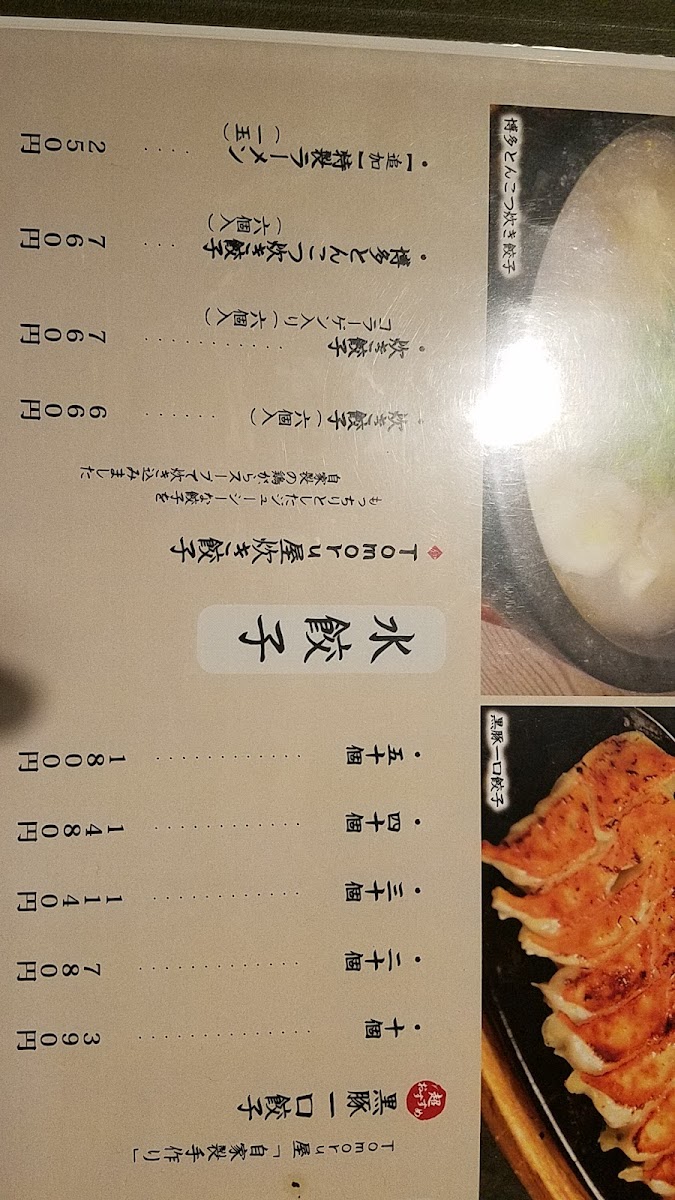 Tomoru屋「自家製手作り」
超おすすめ
黒豚一口餃子
・十個 ············ 390円
・二十個 ············ 780円
・三十個 ············ 1140円
・四十個 ············ 1480円
・五十個 ············ 1800円
水餃子
Tomoru屋炊き餃子
もっちりとしたジューシーな餃子を
自家製の鶏がらスープで炊き込みました
・炊き餃子(六個入) ····· 660円
・炊き餃子 ·········· 760円
コラーゲン入り(六個入)
・博多とんこつ炊き餃子 ··· 760円
(六個入)
・【追加】特製ラーメン ···· 250円
(一玉)
博多とんこつ炊き餃子
黒豚一口餃子